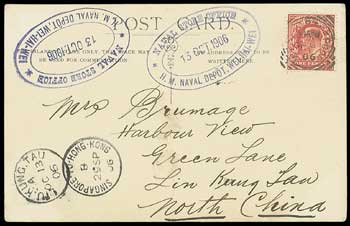 POST CARD
NAVAL STORE OFFICER
13 OCT 1906
H.M. NAVAL DEPOT, WEI-HAI-WEI
NAVAL STORE OFFICER
13 OCT 1906
H.M. NAVAL DEPOT, WEI-HAI-WEI
Mrs Brumage
Harbour View
Green Lane
Lin Kung Tau
North China
LIU KUNG TAU
A
13
OC
06
SINGAPORE TO HONG-KONG
B
SP
06